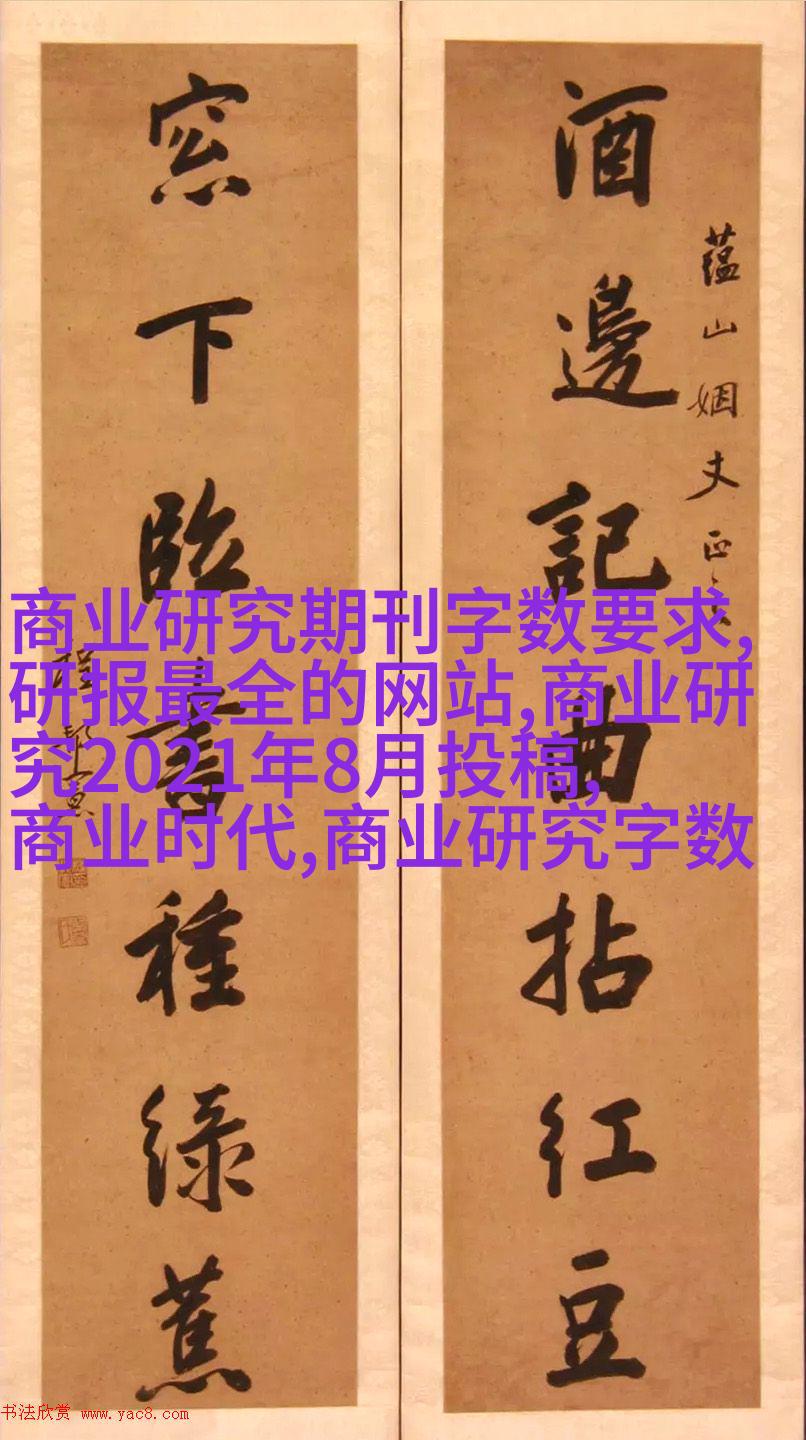 酒邊記曲拈红豆
蕴山姻丈正
窓下臨書種緑蕉
商业研究期刊字数要求,
研报最全的网站,商业研
究2021年8月投稿,
商业时代,商业研究字数
书法欣赏 www.yac8.com